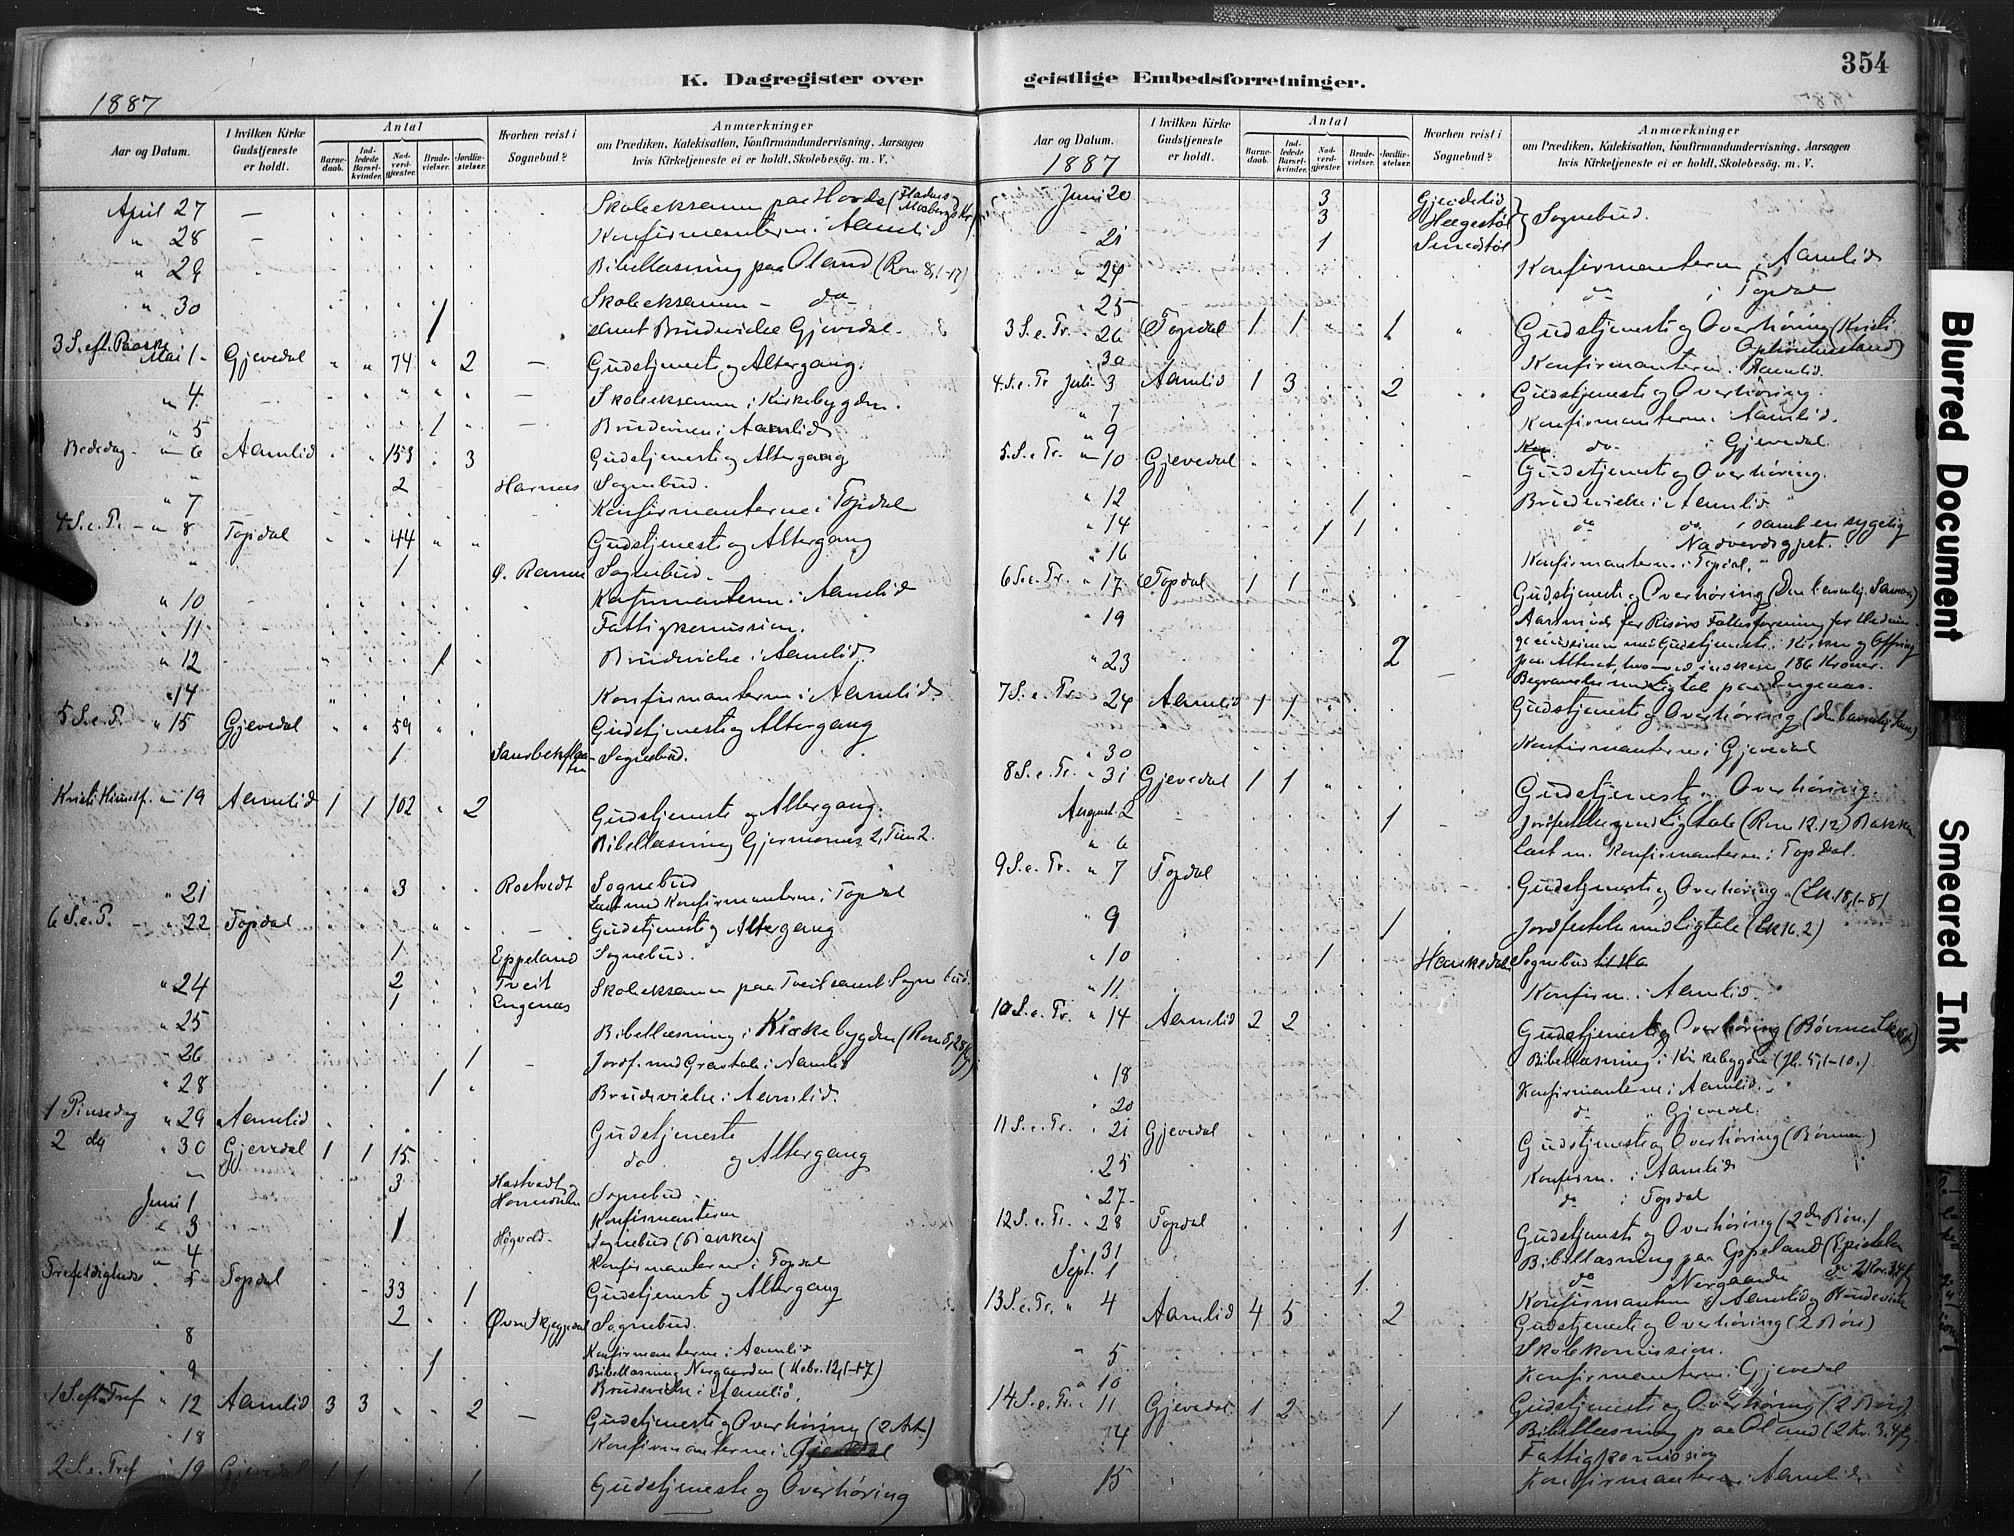 K. Dagregister over
1887
Aar og Datum.
I hvilken Kirke Gudstjeneste er holdt.
Antal
Barnedaab.
Indledede Barselkvinder.
Nadverdgjæster.
Brudevielser.
Jordfæstelser.
Hvorhen reist i Sognebud?
Anmærkninger
om Prædiken, Katekisation, Konfirmandundervisning, Aarsagen
hvis Kirketjeneste ei er holdt, Skolebesøg. m. V.
April 27 Skoleeksamen paa Hovde
" 28 Konfirmanterne i Aamlid
" 29 Bibellæsning paa Oland (Rom 8,1-17)
" 30 Skoleeksamen - do -
1 samt Brudevielse Gjevedal.
3 S. eft. Paaske Mai 1 Gjevedal 74 2 Gudstjeneste og Altergang.
" 4 Skoleeksamen i Kirkebygden.
" 5 1 i Aamlid
Bededag " 6 Aamlid 153 3 Gudstjeneste og Altergang
" 2 Harnes Sognebud.
" 7 Konfirmanterne i Topdal
4 S. e. P. " 8 Topdal 44 Gudstjeneste og Altergang
" 1 Sognebud.
" 10 Konfirmanterne i Aamlid
" 11 Fattigkomission.
" 12 1 Brudevielse i Aamlid.
" 14 Konfirmanterne i Aamlid.
5 S. e. P. " 15 Gjevedal 59 Gudstjeneste og Altergang
1 Sognebud.
Kristi Himelf. " 19 Aamlid 1 1 102 2 Gudstjeneste og Altergang.
Bibellæsning 2 Tim 2.
" 21 3 Sognebud
Læst med Konfirmanterne i Topdal
6 S. e. P. " 22 Topdal Gudstjeneste og Altergang
1 Eppeland Sognebud.
" 24 2 Tveit Skoleeksamen paa Tveit samt Sognebud.
1 Engenes
" 25 Bibellæsning i Kirkebygden
" 26 1 Jordf. med Gravtale i Aamlid
" 28 1 Brudevielse i Aamlid.
1 Pinsedag " 29 Aamlid Gudstjeneste
2 dg " 30 Gjevedal 1 1 15 do og Altergang
3 Hartvedt Sognebud
Juni 1 Konfirmanterne
" 3 1 Sognebud (Bakken)
" 4 Konfirmanterne i Topdal
" 5 Topdal 33 1 Gudstjeneste og Altergang
2 Sognebud.
" 8 Konfirmanterne i Aamlid
Bibellæsning Nergaarden (Hebr. 12,1-17)
" 9 1 Brudevielse i Aamlid.
1 S. eft. Tref " 12 Aamlid 3 3 2 Gudstjeneste og Overhøring (2 Art)
" 18 Konfirmanterne i Gjevedal
2 S. e. Tref " 19 Gjevedal 1 1 1 Gudstjeneste og Overhøring
geistlige Embedsforretninger.
354
Aar og Datum.
1887
I hvilken Kirke Gudstjeneste er holdt.
Antal
Barnedaab.
Indledede Barselkvinder.
Nadverdgjæster.
Brudevielser.
Jordfæstelser.
Hvorhen reist i Sognebud?
Anmærkninger
om Prædiken, Katekisation, Konfirmandundervisning, Aarsagen
hvis Kirketjeneste ei er holdt, Skolebesøg. m. V.
Juni 20 3
3 Hægestøl Sognebud.
" 21 1 Smedstøl
" 24 Konfirmanterne i Aamlid
" 25 do i Topdal
3 S. e. Tr. " 26 Topdal 1 1 1 Gudstjeneste og Overhøring
" 30 Konfirmanterne i Aamlid.
4 S. e. Tr. Juli 3 Aamlid 1 3 2 Gudstjeneste og Overhøring.
" 7 Konfirmanterne i Aamlid.
" 9 do i Gjevedal
5 S. e. Tr. " 10 Gjevedal Gudstjeneste og Overhøring.
" 12 1 Brudevielse i Aamlid
" 14 1 1 do do, samt en sygelig
Nadverdsgjest.
" 16 Konfirmanterne i Topdal.
6 S. e. Tr. " 17 Topdal 1 1 Gudstjeneste og Overhøring
" 19 Aarsmøde for Risørs Fællesforening for Hedningemissionen med Gudstjeneste i Kirken og Offring
paa Alteret, hvorved indkom 186 Kroner.
" 23 2 Begravelse med Ligtale paa Engenes.
7 S. e. Tr. " 24 Aamlid 1 1 Gudstjeneste og Overhøring
" 30 Konfirmanterne i Gjevedal
8 S. e. Tr. " 31 Gjevedal 1 1 Gudstjeneste og Overhøring.
August 2 1 Jordfestelse med Ligtale (Rom 12.12) Bakken
" 6 Læst m. Konfirmanterne i Topdal.
9 S. e. Tr. " 7 Topdal Gudstjeneste og Overhøring
" 9 1 Jordfestelse med Ligtale
" 10 1 Sognebud
" 11 Konfirm. i Aamlid
10 S. e. Tr. " 14 Aamlid 2 2 Gudstjeneste og Overhøring
Bibellæsning i Kirkebygden
" 18 Konfirmanterne i Aamlid.
" 20 do " Gjevedal.
11 S. e. Tr. " 21 Gjevedal Gudstjeneste og Overhøring (Bønnen)
" 25 Konfirm. i Aamlid
" 27 do i Topdal
12 S. e. Tr. " 28 Topdal 1 Gudstjeneste og Overhøring (2den Bøn.)
" 31 Bibellæsning paa Eppeland
Sept. 1 1 do Nergaarden
13 S. e. Tr. " 4 Aamlid 4 5 2 Konfirmanterne i Aamlid og Brudevielse
Gudstjeneste og Overhøring (2 Bøn)
" 5 Skolekomission.
" 10 Konfirmanterne i Gjevedal
14 S. e. Tr. " 11 Gjevedal 1 2 1 Gudstjeneste og Overhøring (2 Bøn).
" 14 Bibellæsning paa Oland
Fattigkomission
" 15 Konfirmanterne i Aamlid
Blurred Document
Smeared Ink